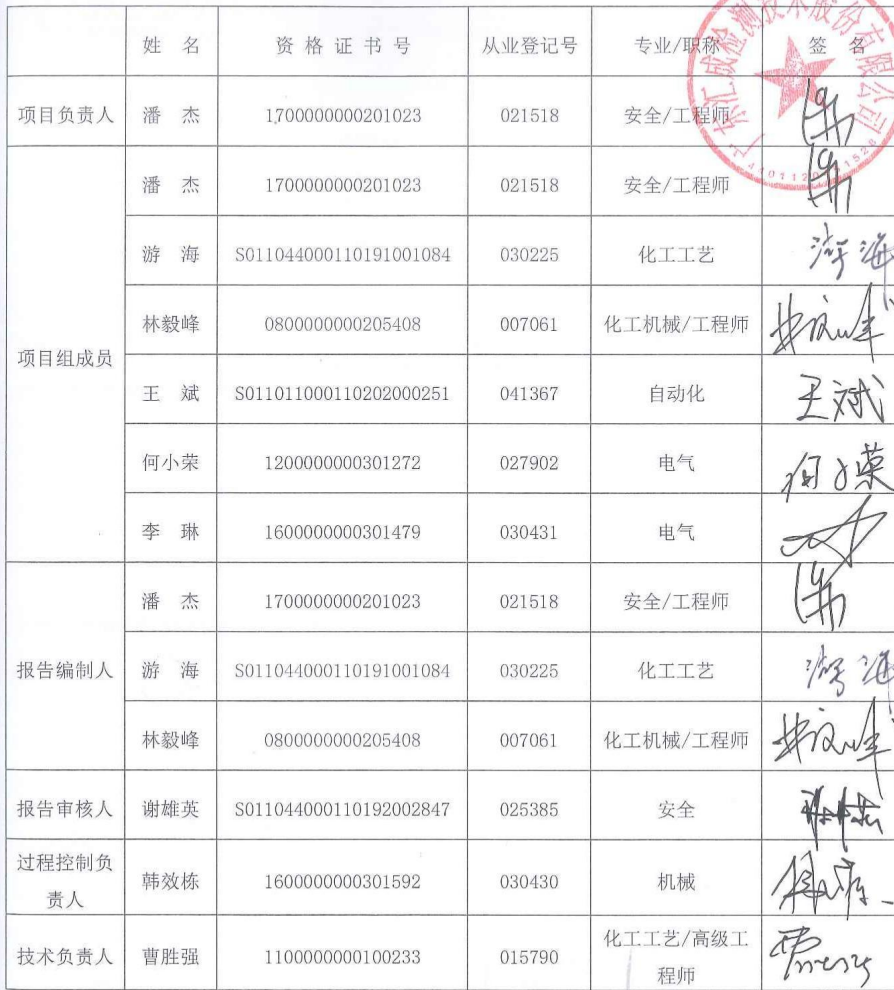 姓 名 资 格 证 书 号 从业登记号 专业/职称 签 名
项目负责人 潘 杰 1700000000201023 021518 安全/工程师
项目组成员
潘 杰 1700000000201023 021518 安全/工程师
游 海 S011044000110191001084 030225 化工工艺 游海
林毅峰 0800000000205408 007061 化工机械/工程师
王 斌 S011011000110202000251 041367 自动化 王斌
何小荣 1200000000301272 027902 电气 何小荣
李 琳 1600000000301479 030431 电气
报告编制人
潘 杰 1700000000201023 021518 安全/工程师
游 海 S011044000110191001084 030225 化工工艺 游海
林毅峰 0800000000205408 007061 化工机械/工程师
报告审核人 谢雄英 S011044000110192002847 025385 安全
过程控制负
责人
韩效栋 1600000000301592 030430 机械
技术负责人 曹胜强 1100000000100233 015790 化工工艺/高级工
程师
广东汇成检测技术股份有限公司